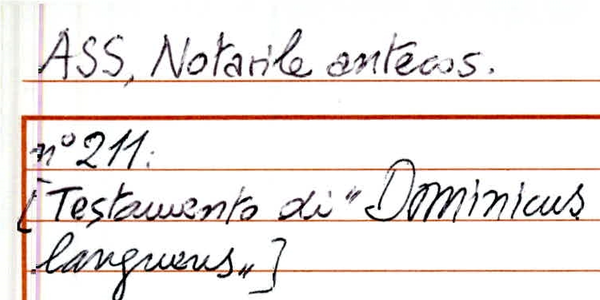 ASS, Notarile antecos.
n° 211:
[Testamento di "Dominicus
languens"]